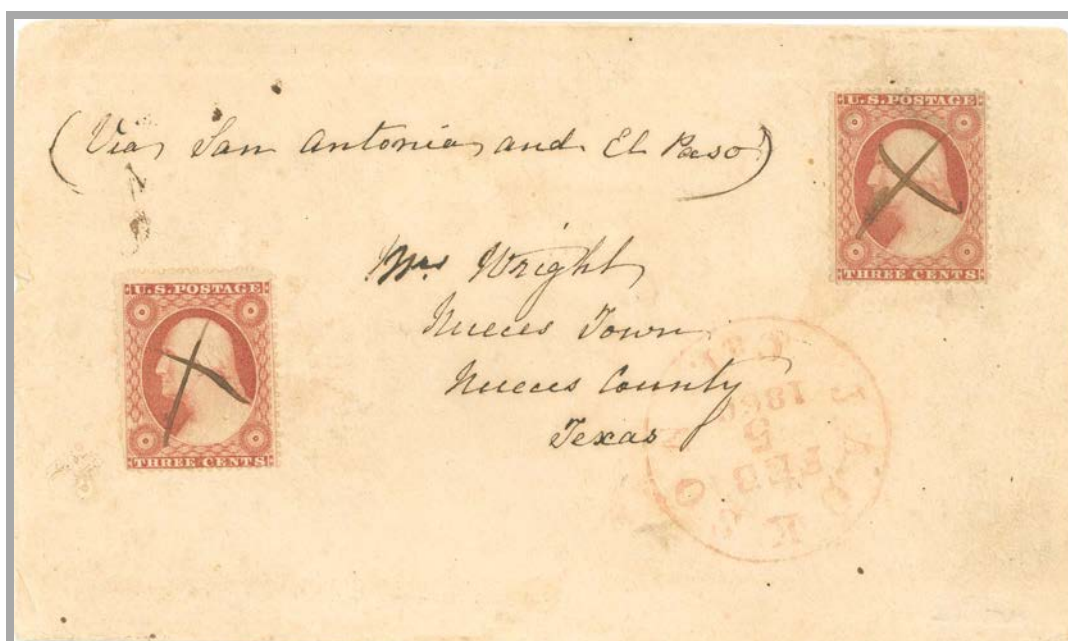 (Via San Antonio and El Paso)
U.S. POSTAGE
THREE CENTS
Mrs Wright
Nueces Town
Nueces County
Texas
U.S. POSTAGE
THREE CENTS
FEB
5